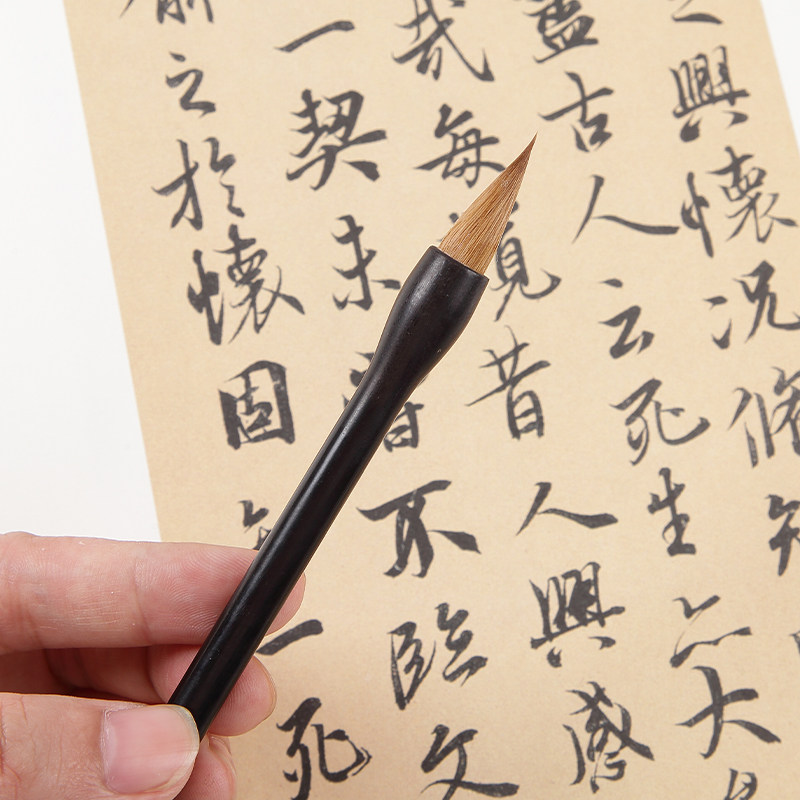 之興懷況脩
盡古人云死生亦大
哉每覽昔人興感
一契未嘗不臨文
之於懷固
一死